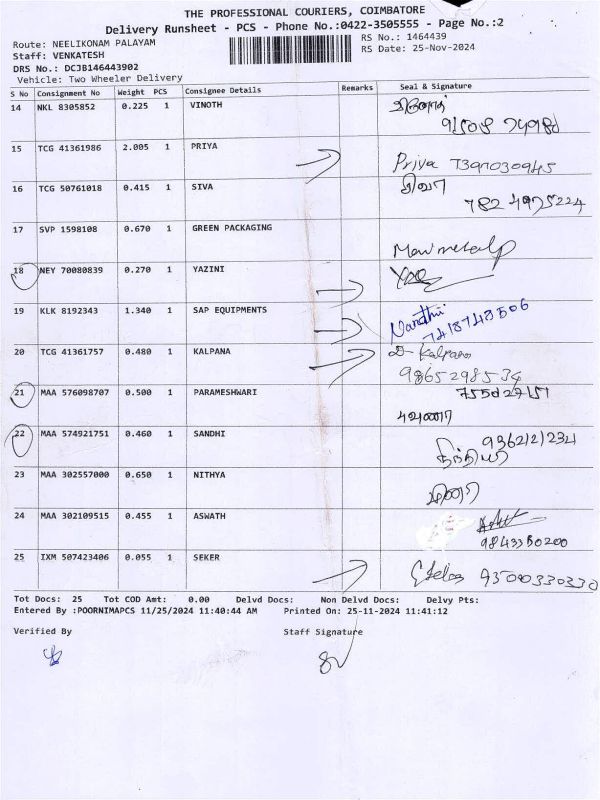 THE PROFESSIONAL COURIERS, COIMBATORE
Delivery Runsheet - PCS - Phone No.:0422-3505555 - Page No.:2
Route: NEELIKONAM PALAYAM
RS No.: 1464439
Staff: VENKATESH
RS Date: 25-Nov-2024
DRS No.: DCJB146443902
Vehicle: Two Wheeler Delivery
S No Consignment No Weight PCS Consignee Details Remarks Seal & Signature
14 NKL 8305852 0.225 1 VINOTH
15 TCG 41361986 2.005 1 PRIYA
Priya 7397030945
16 TCG 50761018 0.415 1 SIVA
சிவா
782 4975224
17 SVP 1598108 0.670 1 GREEN PACKAGING
18 NEY 70080839 0.270 1 YAZINI
19 KLK 8192343 1.340 1 SAP EQUIPMENTS
7418743506
20 TCG 41361757 0.480 1 KALPANA
D- Kalpana
9865298534
21 MAA 576098707 0.500 1 PARAMESHWARI
22 MAA 574921751 0.460 1 SANDHI
9362121234
23 MAA 302557000 0.650 1 NITHYA
24 MAA 302109515 0.455 1 ASWATH
9843350200
25 IXM 507423406 0.055 1 SEKER
93500330330
Tot Docs: 25 Tot COD Amt: 0.00 Delvd Docs: Non Delvd Docs: Delvy Pts:
Entered By :POORNIMAPCS 11/25/2024 11:40:44 AM Printed On: 25-11-2024 11:41:12
Verified By Staff Signature